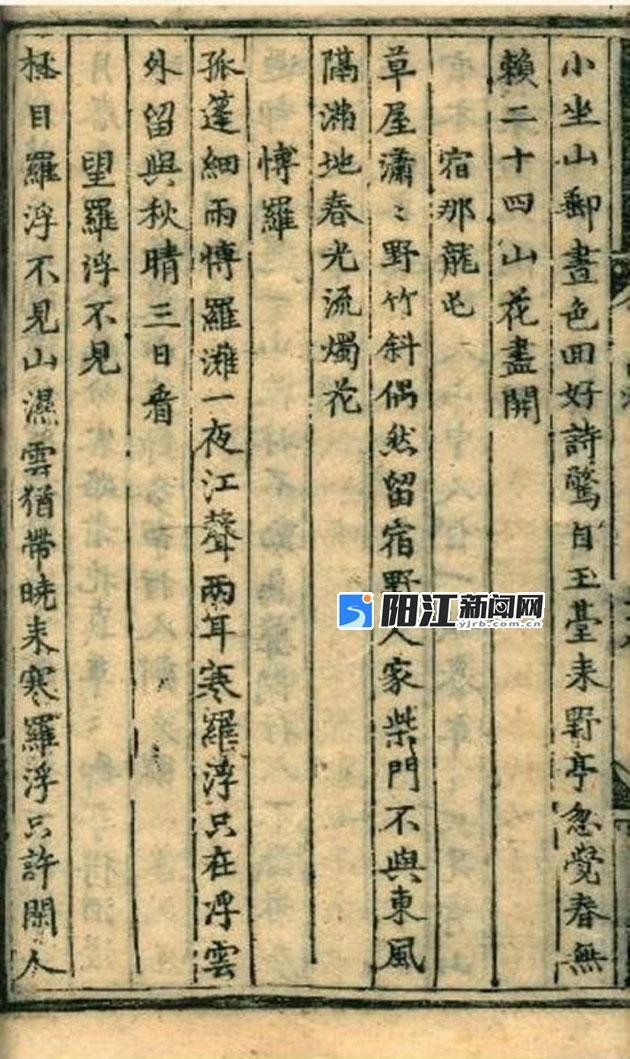 小坐山郵晝色回好詩驚自玉臺来野亭忽覺春無
賴二十四山花盡開
宿那龍屯
草屋瀟〻野竹斜偶然留宿野人家柴門不與東風
隔滿地春光流燭花
愽羅
孤蓬細雨愽羅灘一夜江聲兩耳寒羅浮只在浮雲
外留與秋晴三日看
望羅浮不見
極目羅浮不見山濕雲猶帶曉来寒羅浮只許閑人
阳江新闻网
yjrb.com.cn